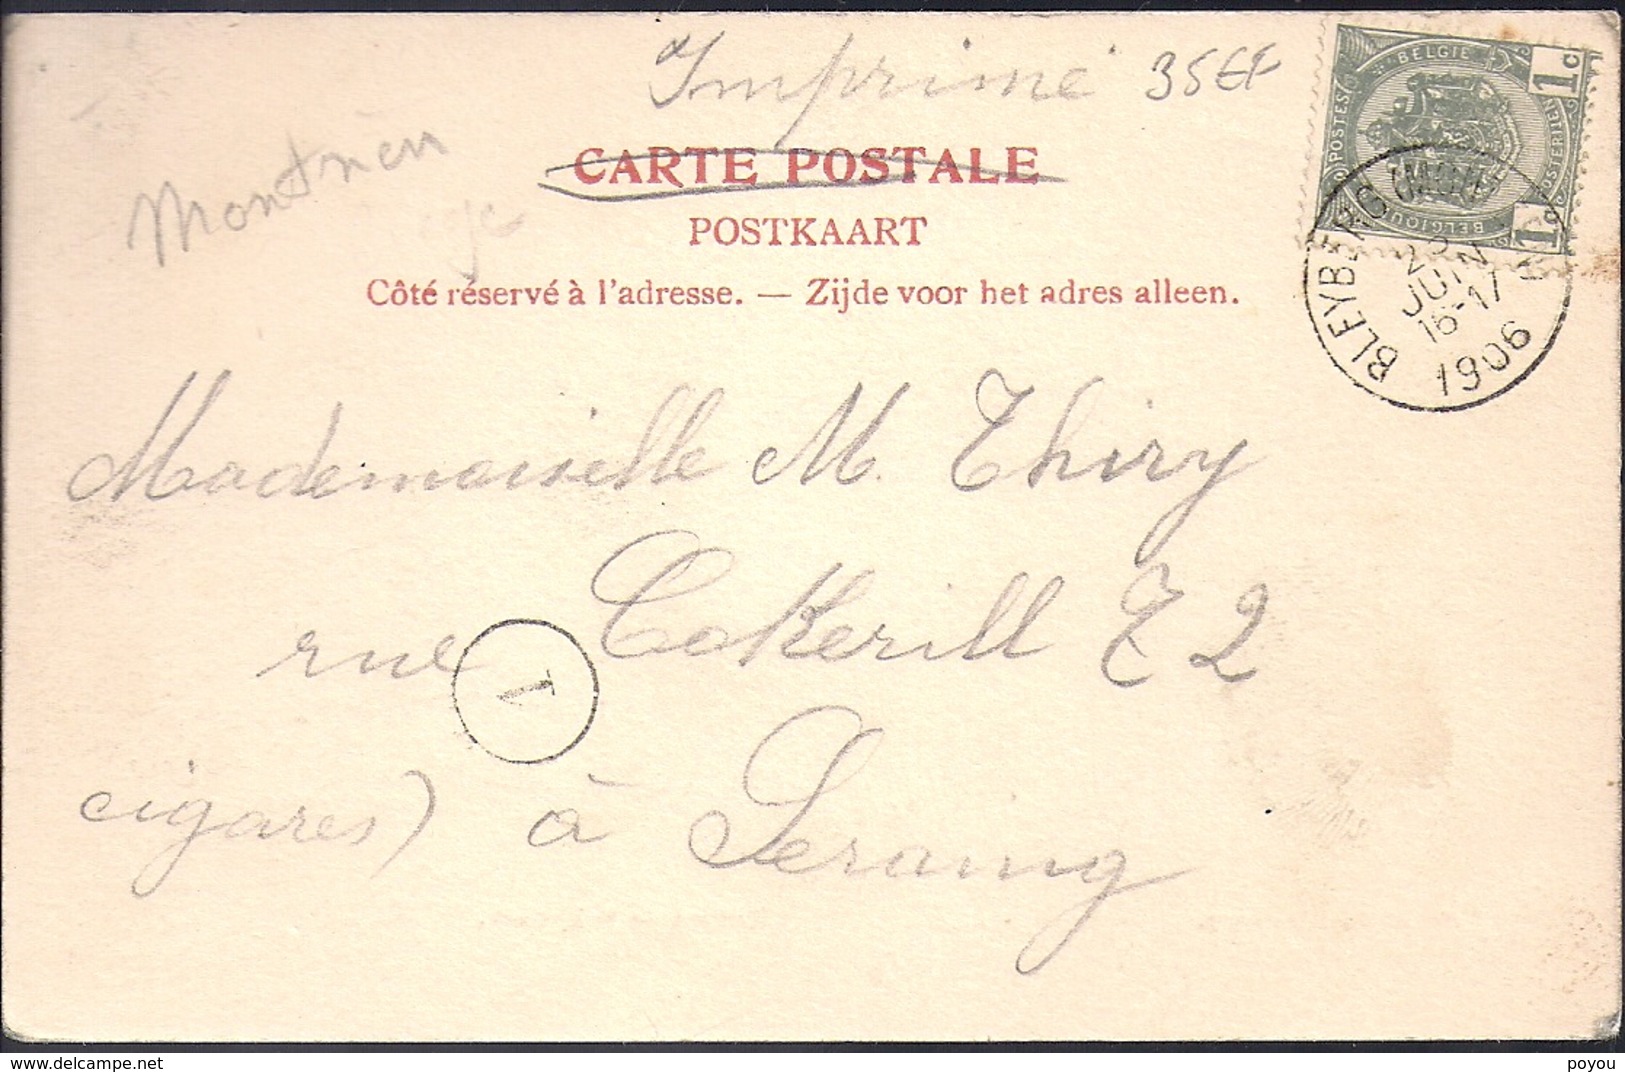 Imprimé 35 EF
Montzen
CARTE POSTALE
POSTKAART
Côté réservé à l'adresse. — Zijde voor het adres alleen.
BELGIE
POSTES POSTERIJEN
BELGIQUE
1c
1c
BLEYBERG
23
JUIN
16-17
1906
Mademoiselle M. Thiry
rue Cokerill 72
1
cigares) à Seraing
delcampe.net
poyou